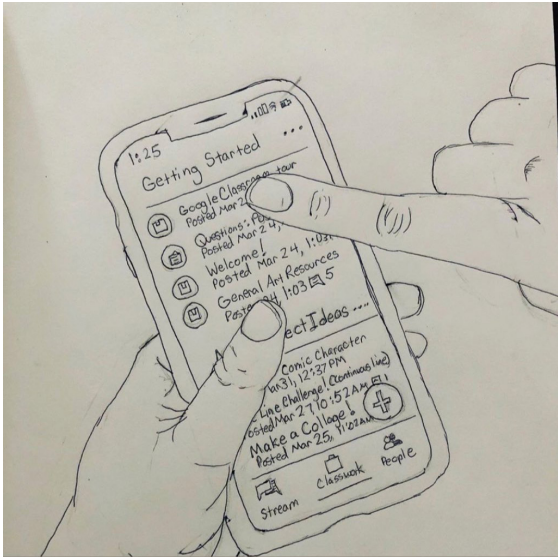 1:25
Getting Started
Google Classroom tour
Posted Mar 2
Questions:
Posted Mar 24,
Welcome!
Posted Mar 24, 1:03
General Art Resources
Poste 24, 1:03 5
ect Ideas
Comic Character
ar 31, 12:37 PM
Line Challenge! (Continuous line)
osted Mar 27, 10:52 AM
Make a Collage!
Posted Mar 25, 11:02 AM
Stream
Classwork
People